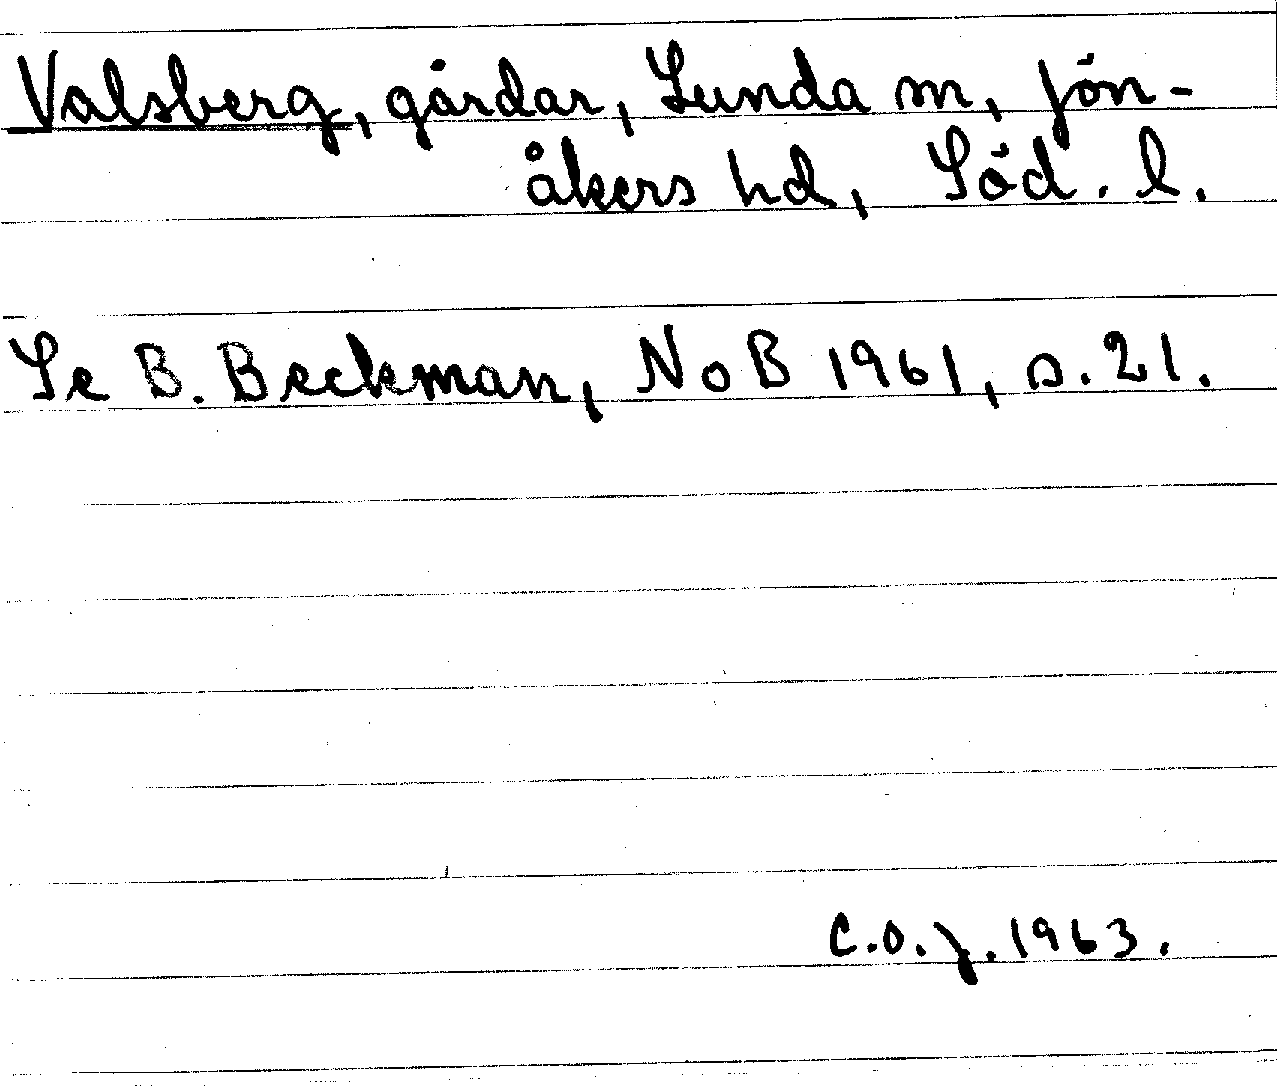 Valsberg, gårdar, Lunda sn, Jön-
åkers hd, Söd. l.
Se B. Beckman, NoB 1961, s. 21.
C.O.J. 1963.